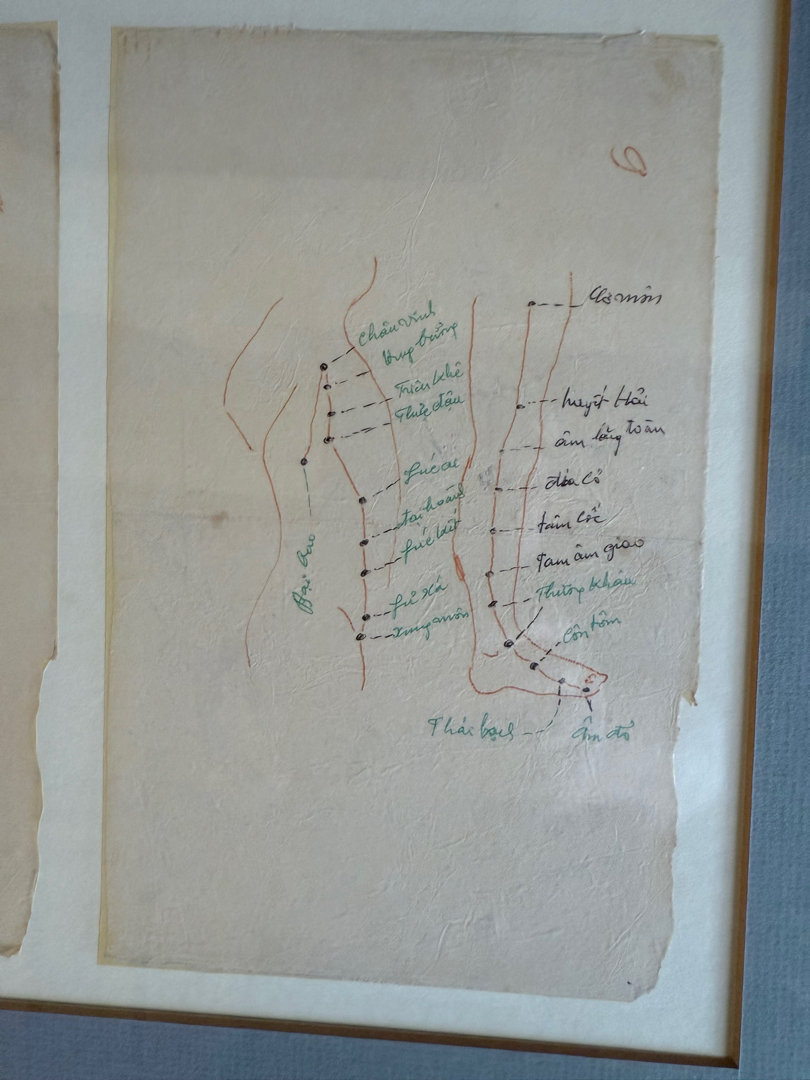 6
Châu Vinh
hung hương
Thiên khê
Thực đậu
phúc ai
đại hoành
phúc kết
phủ xá
xung môn
Đại bao
Cơ môn
huyết Hải
âm lăng toàn
địa cơ
tâm cốc
Tam âm giao
Thương khâu
Côn tôn
Thái bạch
âm đô